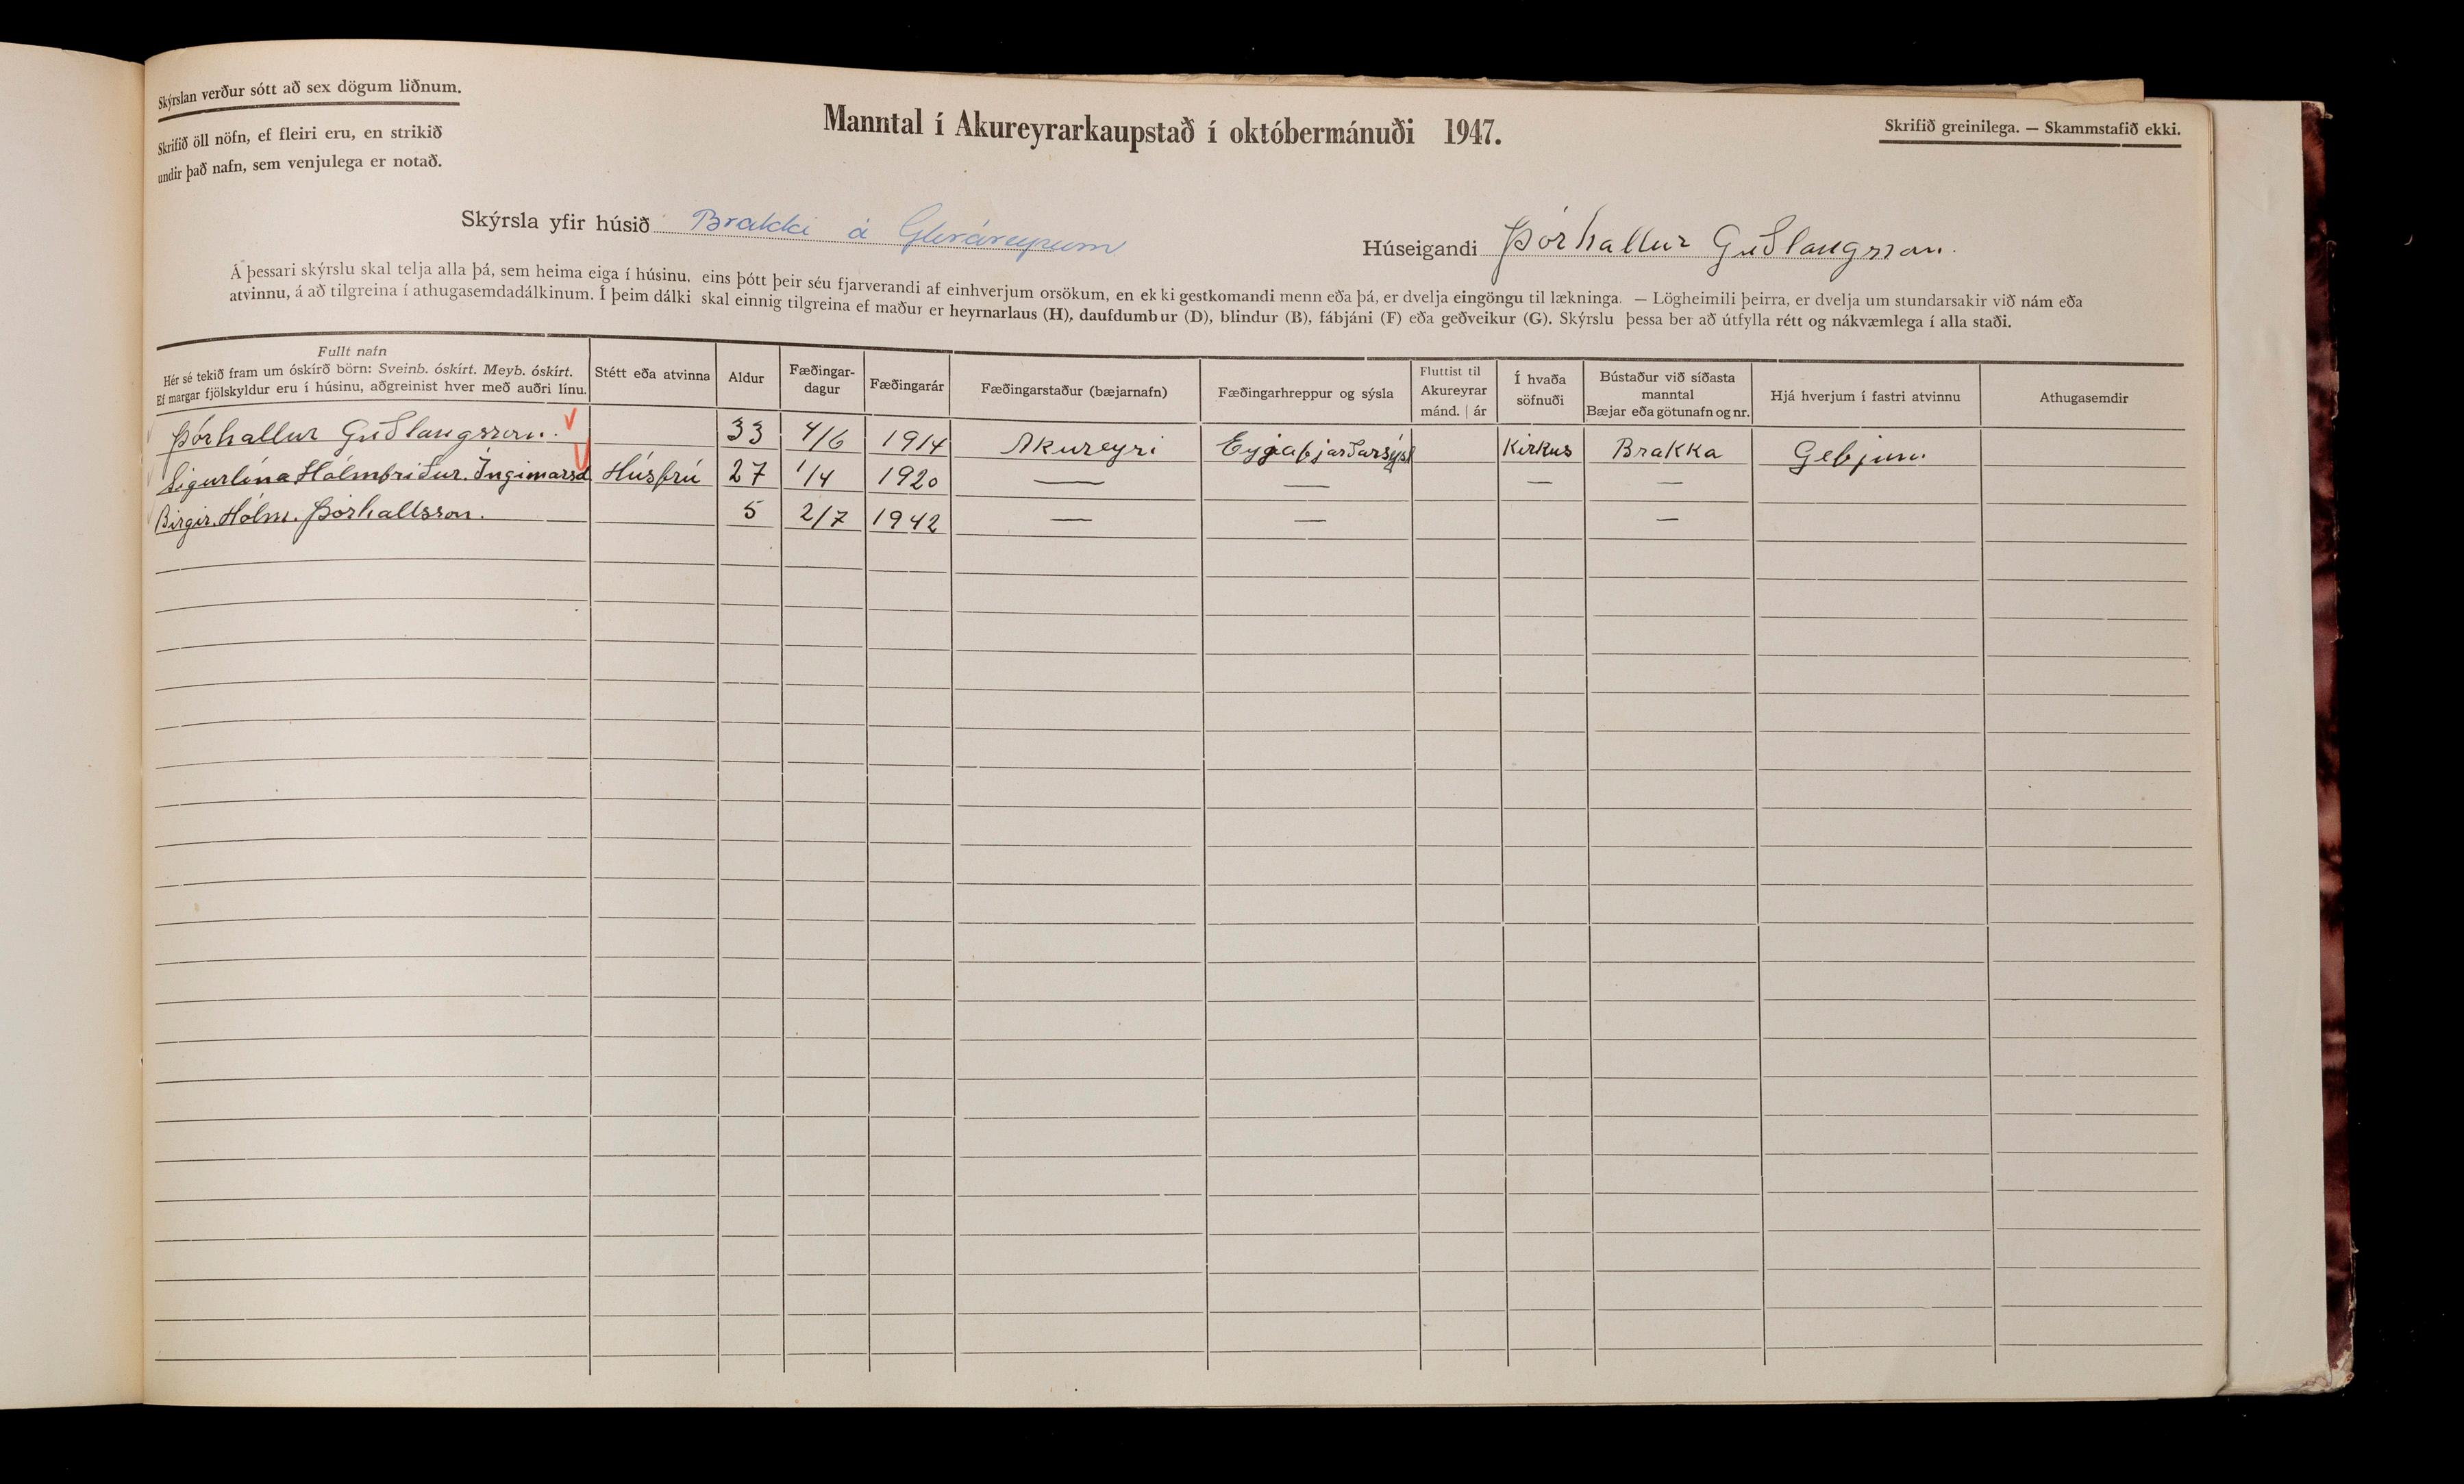 Skýrslan verður sótt að sex dögum liðnum.
Skrifið öll nöfn, ef fleiri eru, en strikið
undir það nafn, sem venjulega er notað.
Manntal í Akureyrarkaupstað í októbermánuði 1947.
Skrifið greinilega. — Skammstafið ekki.
Skýrsla yfir húsið Brakki á Gleráreyrum
Húseigandi Þórhallur Guðlaugsson.
Á þessari skýrslu skal telja alla þá, sem heima eiga í húsinu, eins þótt þeir séu fjarverandi af einhverjum orsökum, en ekki gestkomandi menn eða þá, er dvelja eingöngu til lækninga. — Lögheimili þeirra, er dvelja um stundarsakir við nám eða
atvinnu, á að tilgreina í athugasemdadálkinum. Í þeim dálki skal einnig tilgreina ef maður er heyrnarlaus (H), daufdumbur (D), blindur (B), fábjáni (F) eða geðveikur (G). Skýrslu þessa ber að útfylla rétt og nákvæmlega í alla staði.
Fullt nafn
Hér sé tekið fram um óskírð börn: Sveinb. óskírt. Meyb. óskírt.
Ef margar fjölskyldur eru í húsinu, aðgreinist hver með auðri línu.
Stétt eða atvinna
Aldur
Fæðingar-
dagur
Fæðingarár
Fæðingarstaður (bæjarnafn)
Fæðingarhreppur og sýsla
Fluttist til
Akureyrar
mánd. | ár
Í hvaða
söfnuði
Bústaður við síðasta
manntal
Bæjar eða götunafn og nr.
Hjá hverjum í fastri atvinnu
Athugasemdir
Þórhallur Guðlaugsson. 33 4/6 1914 Akureyri Eyjafjarðarsýsl Kirkus Brakka Gefjun.
Sigurlína Hólmfriður. Ingimarsd Húsfrú 27 1/4 1920 — — — —
Birgir. Hólm. Þórhallsson. 5 2/7 1942 — — —